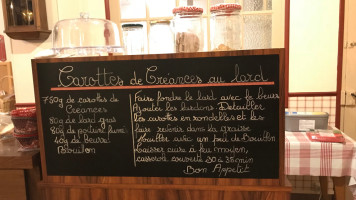 Carottes de Créances au lard
750g de carottes de
Créances
80g de lard gras
80g de poitrine fumé
40g de beurre
Bouillon
Faire fondre le lard avec le beurre
Ajouter les lardons Détailler
les carottes en rondelles et les
faire revenir dans la graisse
Mouiller avec un peu de bouillon
laisser cuire à feu moyen,
casserole couverte 30 à 35 min
Bon Appétit